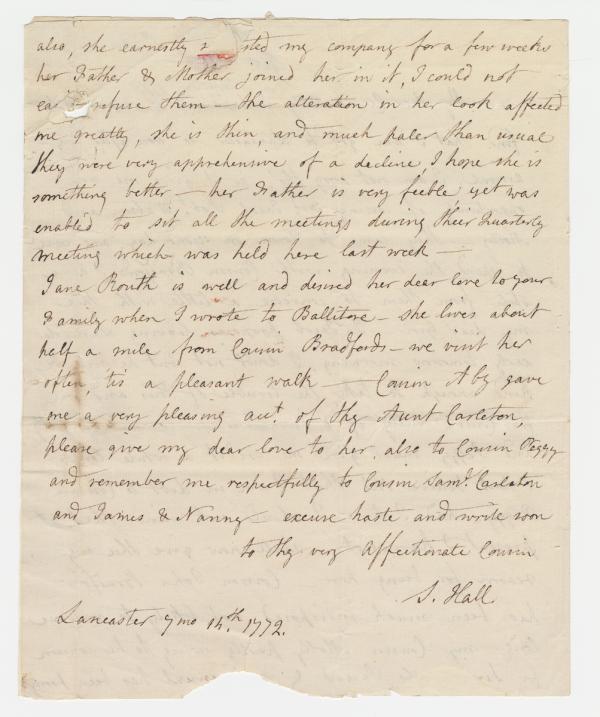 also, she earnestly sted my company for a few weeks
her Father & Mother joined her in it, I could not
refuse them — the alteration in her look affected
me greatly, she is thin, and much paler than usual
they were very apprehensive of a decline, I hope she is
something better — her Father is very feeble, yet was
enabled to sit all the meetings during their Quarterly
meeting which was held here last week —
Jane Routh is well and desired her dear love to your
Family when I wrote to Ballitore — she lives about
half a mile from Cousin Bradfords — we visit her
often, 'tis a pleasant walk — Cousin Aby gave
me a very pleasing acct. of thy Aunt Carleton,
please give my dear love to her, also to Cousin Peggy
and remember me respectfully to Cousin Saml. Carleton
and James & Nanny — excuse haste and write soon
to thy very affectionate Cousin
S. Hall
Lancaster 7mo 14th. 1772.